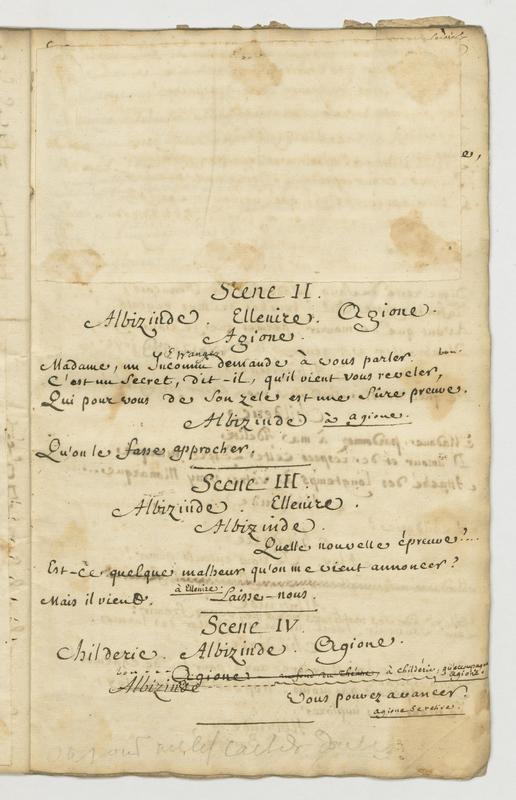 e,
Scene II.
Albizinde. Ellenire. Agione.
Agione.
Etranger
Madame, un Inconnu demande à vous parler. bon.
C'est un Secret, dit-il, qu'il vient vous reveler,
Qui pour vous de Son zele est une Sûre preuve.
Albizinde à agione.
Qu'on le fasse approcher,
Scene III.
Albizinde. Ellenire.
Albizinde.
Quelle nouvelle épreuve?...
Est-ce quelque malheur qu'on me vient annoncer?
à Ellenire.
Mais il vient. Laisse-nous.
Scene IV.
Childeric. Albizinde. Agione.
bon
Agione au fond du Théatre, à Childéric, qu'accompagne
Albizinde agione.
Vous pouvez avancer.
agione Se retire.